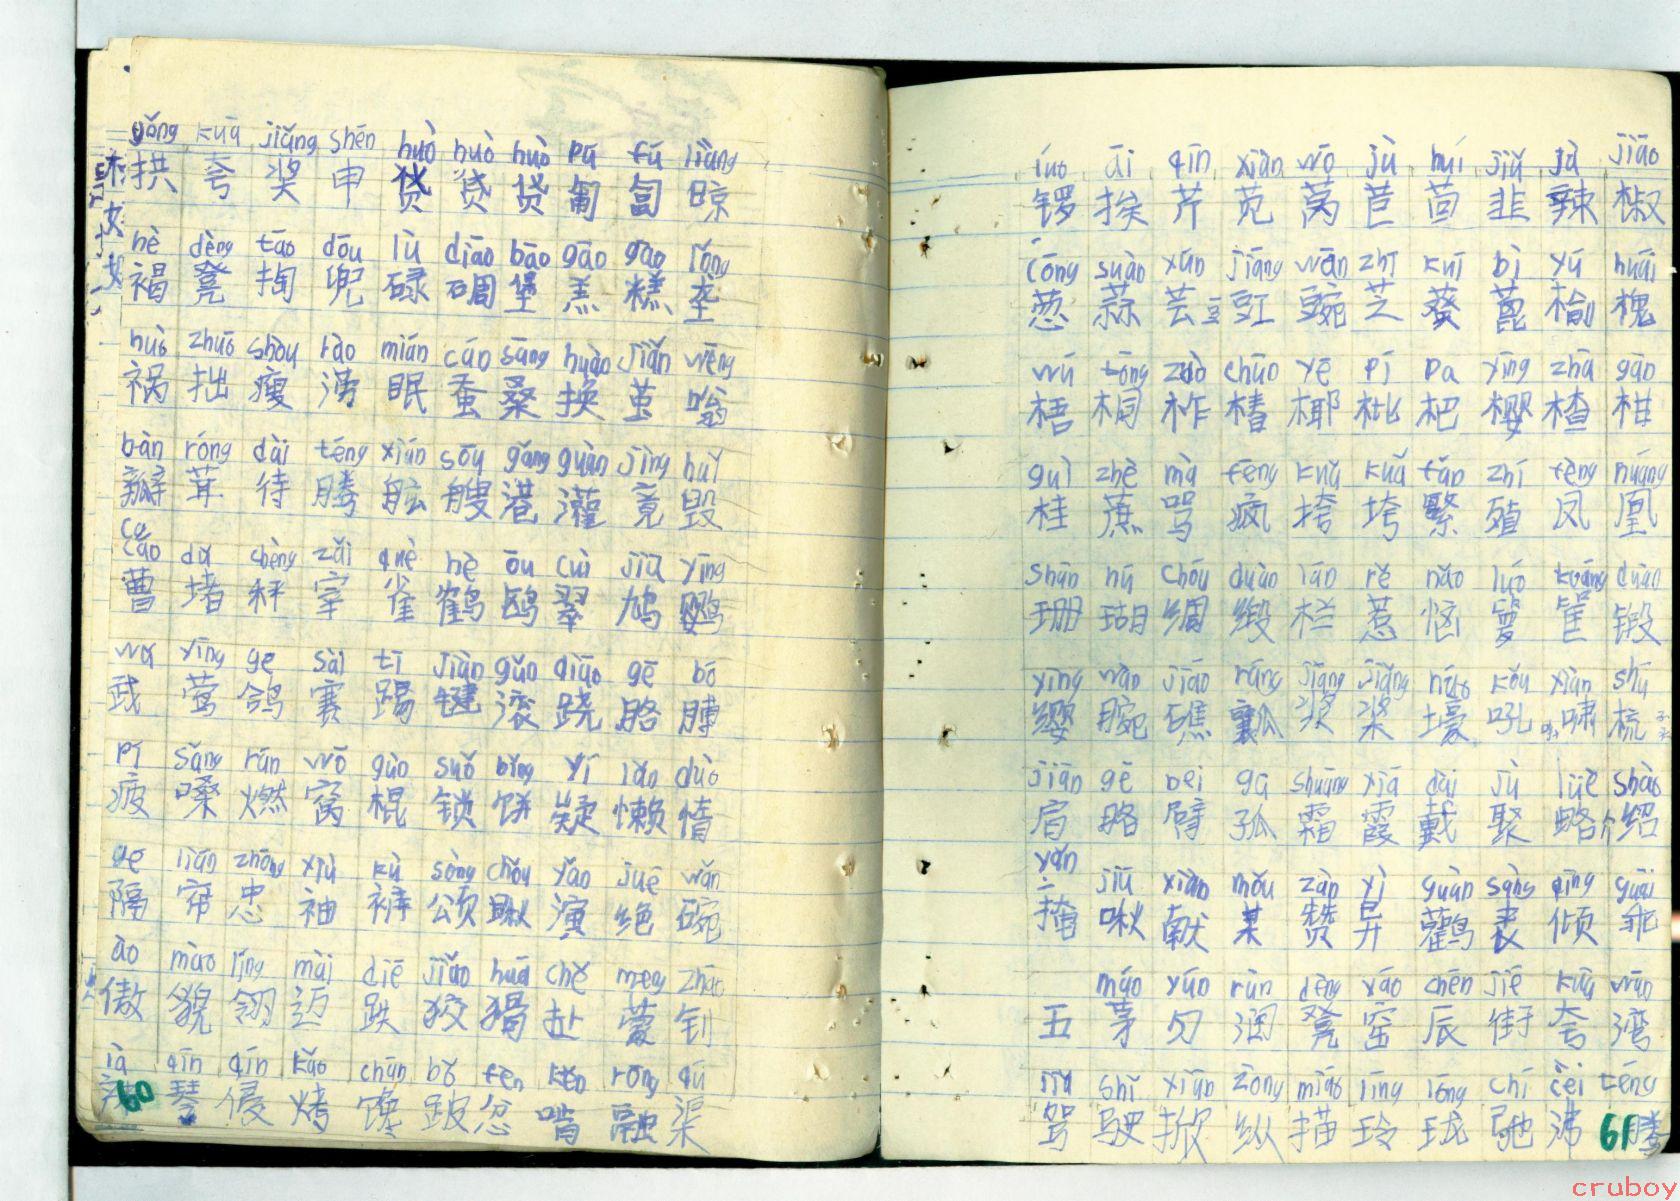 gǒng kuā jiǎng shēn huò huò huò pú fú liàng
拱 夸 奖 申 货 贷 贷 匍 匐 晾
hè dèng tāo dōu lù diāo bǎo gāo gāo lǒng
褐 凳 掏 兜 碌 碉 堡 羔 糕 垄
huò zhuō shòu lào mián cán sāng huàn jiǎn wēng
祸 拙 瘦 涝 眠 蚕 桑 换 茧 嗡
bàn róng dài téng xián sōu gǎng guàn jìng huǐ
瓣 茸 待 腾 舷 艘 港 灌 竟 毁
cáo dǔ chèng zǎi què hè ōu cuì jiū yīng
曹 堵 秤 宰 雀 鹤 鸥 翠 鸠 鹦
wǔ yīng gē sài tī jiàn gǔn qiāo gē bó
武 莺 鸽 赛 踢 毽 滚 跷 胳 膊
pí sǎng rán wō gùn suǒ bǐng yí lǎn duò
疲 嗓 燃 窝 棍 锁 饼 疑 懒 惰
gé lián zhōng xiù kù sòng chǒu yǎn jué wǎn
隔 帘 忠 袖 裤 颂 瞅 演 绝 碗
ào mào líng mài diē jiǎo huá chě méng zhāo
傲 貌 翎 迈 跌 狡 猾 扯 蒙 钊
là qín qīn kǎo chán bǒ fèn kěn róng qú
60 琴 侵 烤 馋 跛 忿 啃 融 渠
luó āi qín xiàn wō jù huí jiǔ là jiāo
锣 挨 芹 苋 莴 苣 茴 韭 辣 椒
cōng suàn yún jiāng wān zhī kuí bì yú huái
葱 蒜 芸 豆 豇 豌 芝 葵 蓖 榆 槐
wú tóng zuò chūn yē pí pa yīng zhā gān
梧 桐 柞 椿 椰 枇 杷 樱 楂 柑
guì zhè mà fēng kuǎ kuǎ fán zhí fèng huáng
桂 蔗 骂 疯 挎 垮 繁 殖 凤 凰
shān hú chóu duàn lán rě nǎo luó kuāng duàn
珊 瑚 绸 缎 栏 惹 恼 箩 筐 锻
yīng wàn jiāo ráng jiāng jiǎng háo kǒu xiào shū
缨 腕 礁 瓤 浆 桨 壕 吼 啸 梳
jiān gē bei gū shuāng xiá dài jù lüè shào
肩 胳 臂 孤 霜 霞 戴 聚 略 介绍
yǎn jiū xiàn mǒu zàn yì guàn sàng qīng guāi
掩 啾 献 某 赞 异 鹳 丧 倾 乖
máo yún rùn dèng yáo chén jiē kuā wān
五 茅 匀 润 凳 窑 辰 街 夸 湾
jià shǐ xiān zòng miáo líng lóng chí fèi téng
驾 驶 掀 纵 描 玲 珑 驰 沸 腾
61
cruboy